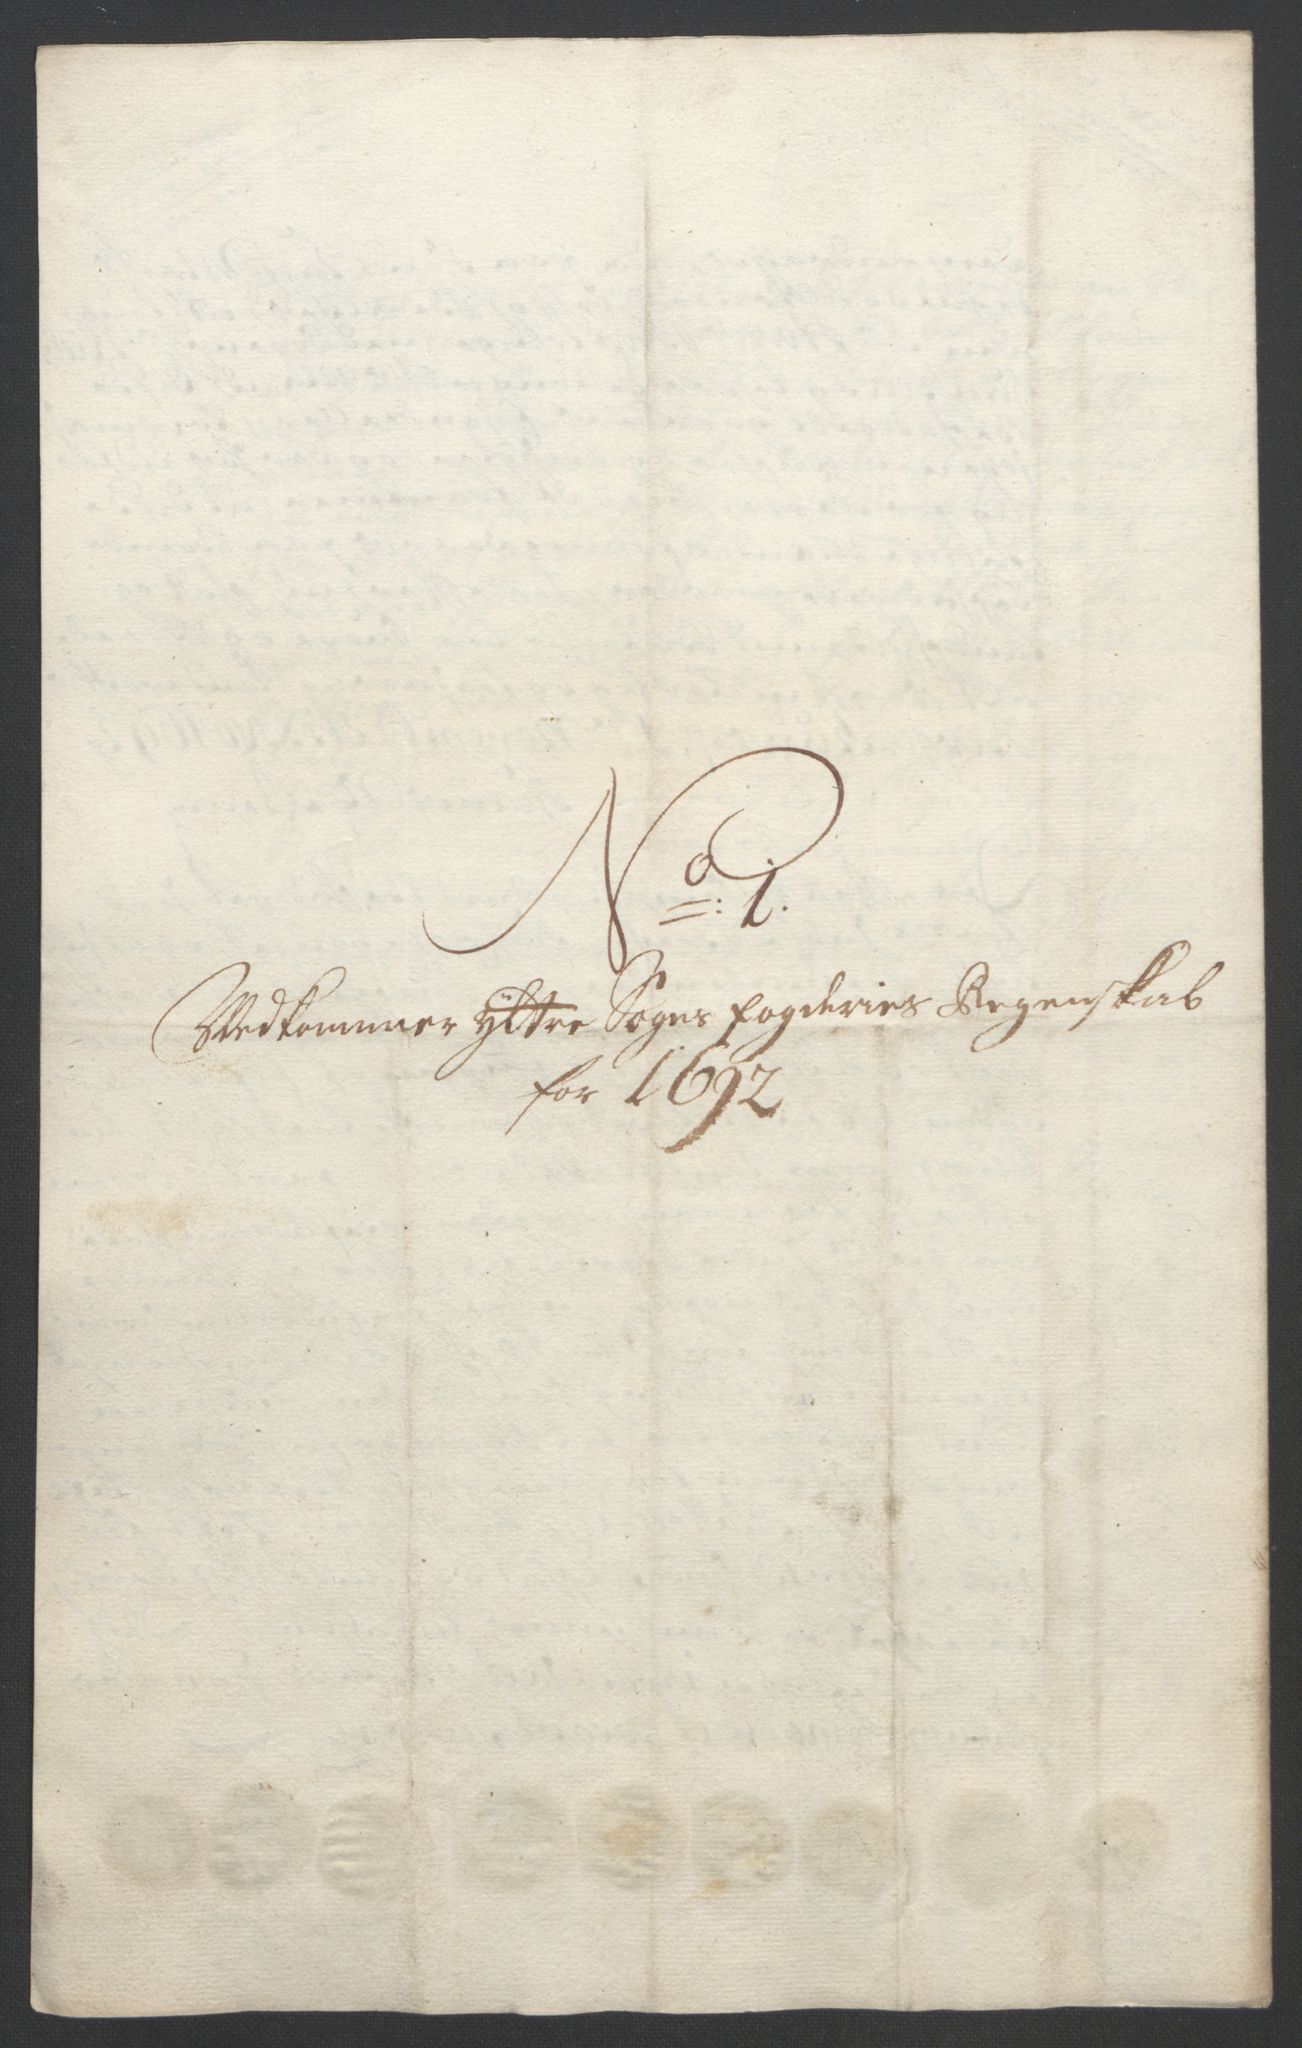 No: 1.
Vedkommer Yttre Sogns fogderies Regenskab
for 1692